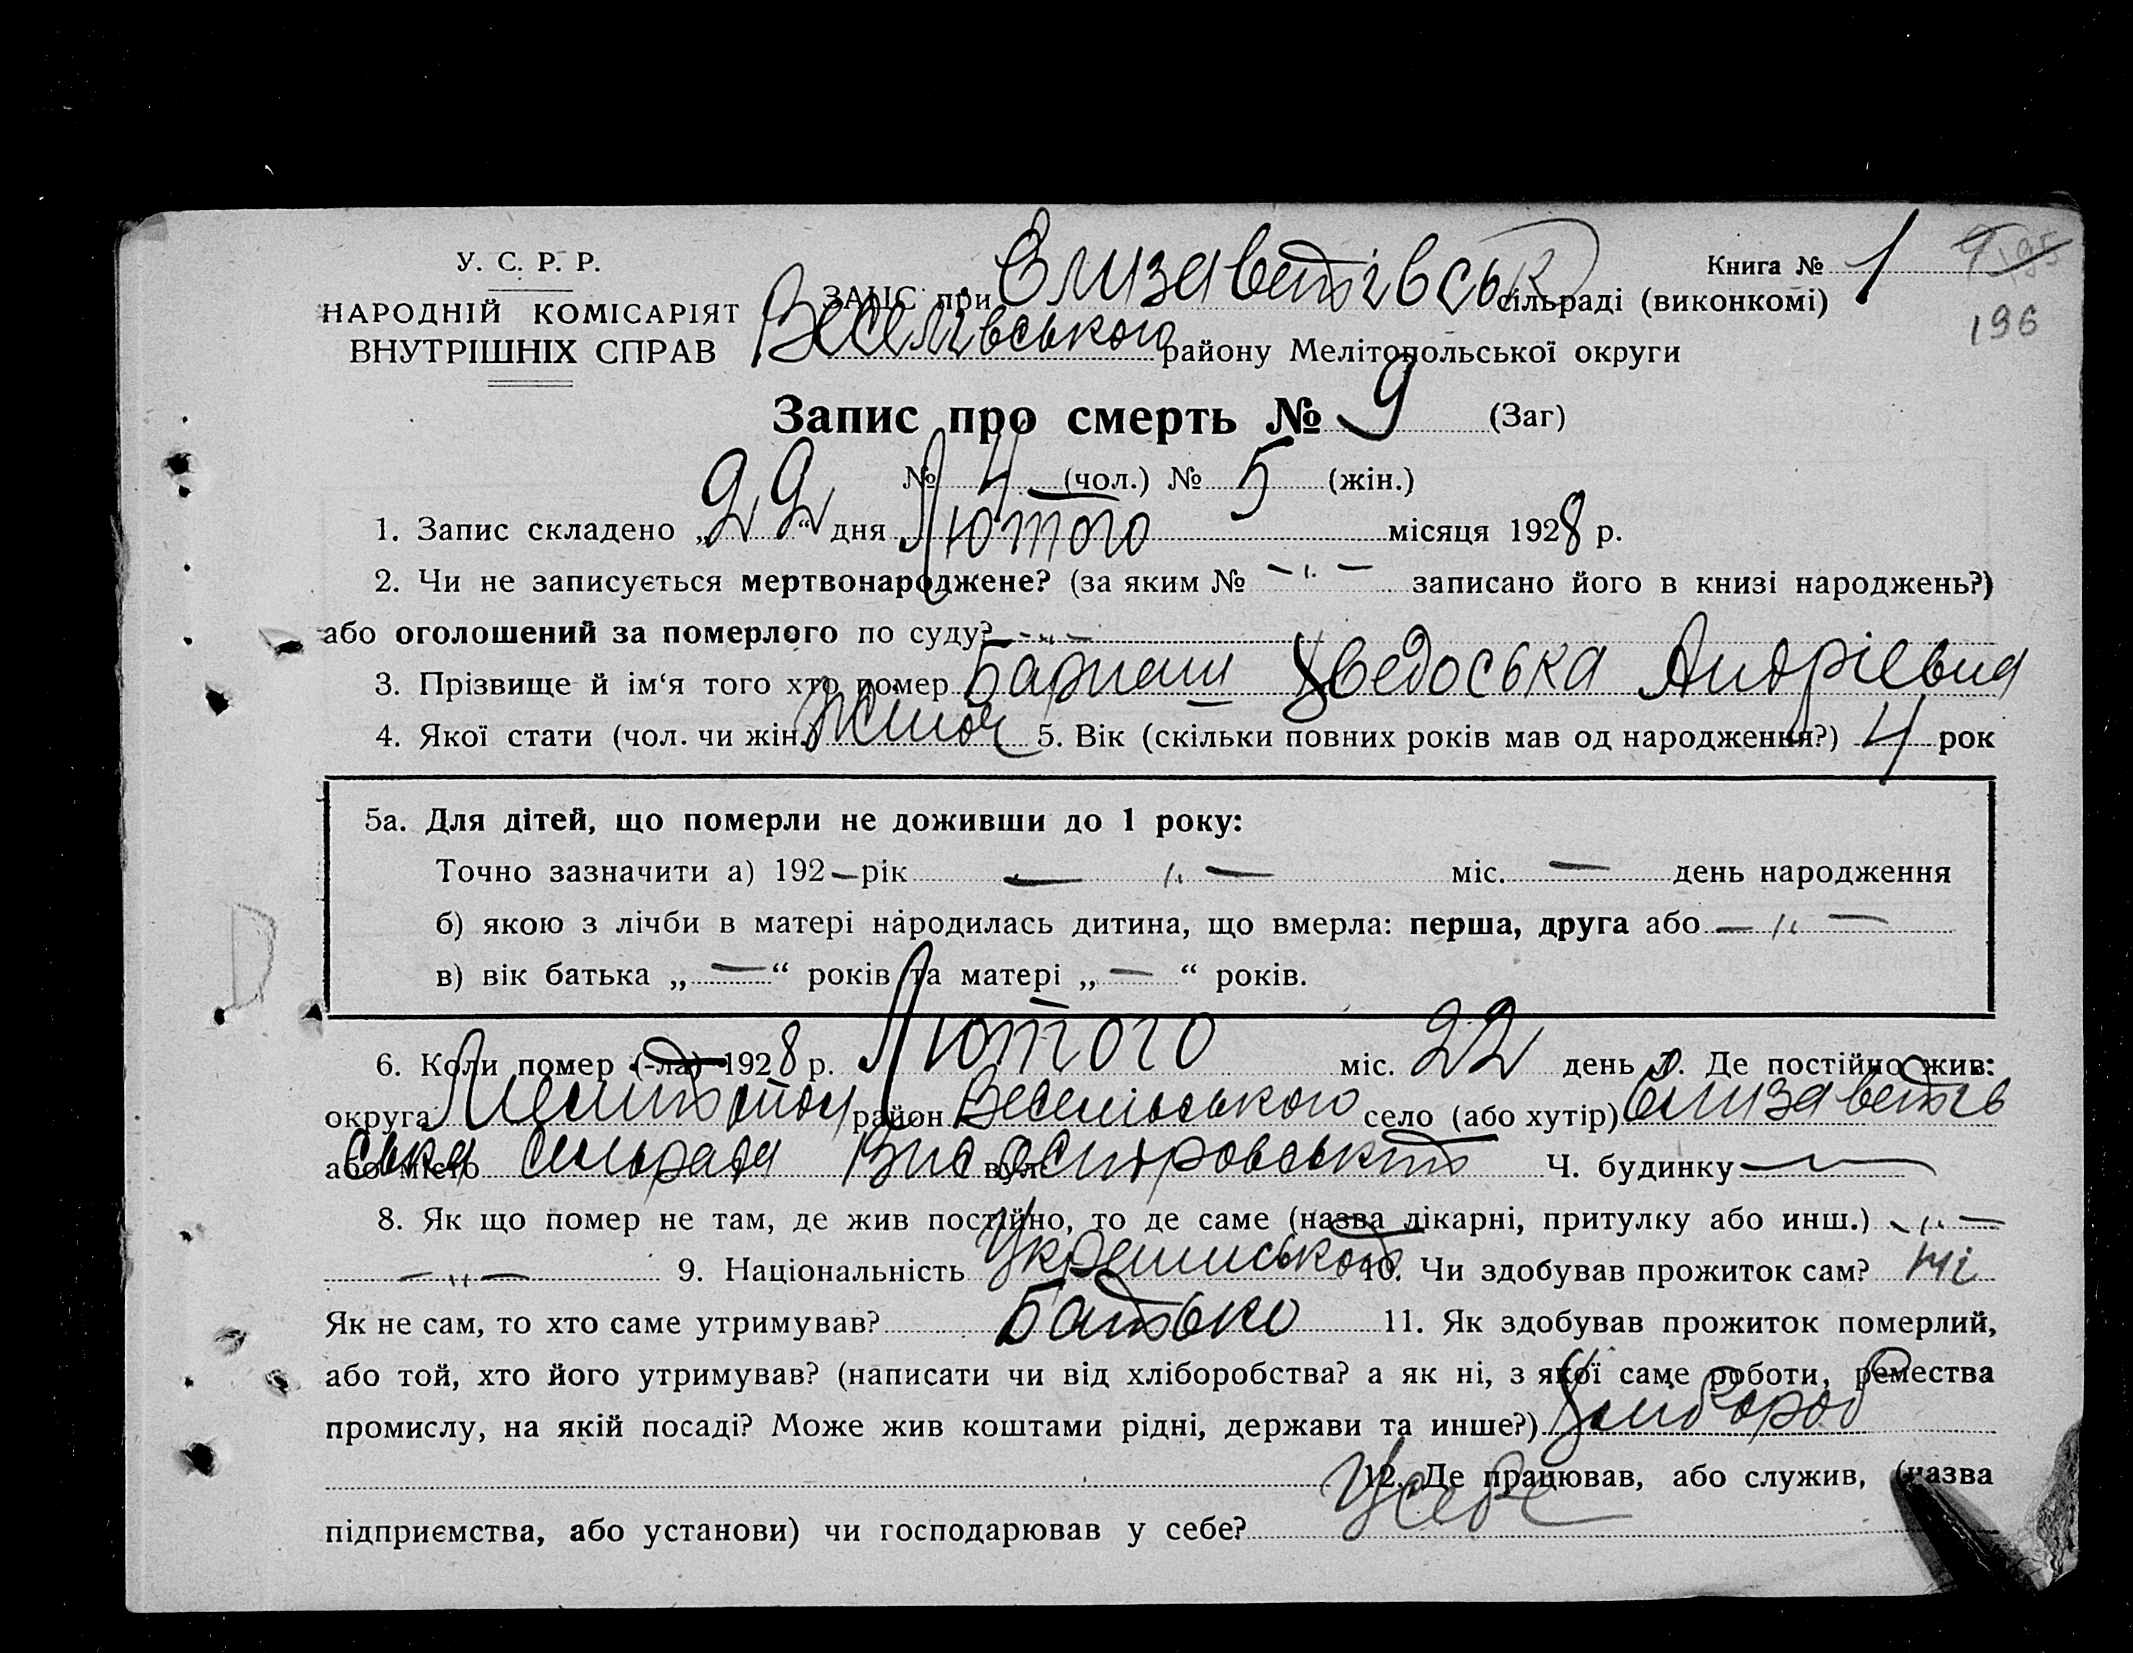 У. С. Р. Р.
НАРОДНІЙ КОМІСАРІЯТ
ВНУТРІШНІХ СПРАВ
Книга № 1
195
196
ЗАГС при Єлизаветівськ сільраді (виконкомі)
Веселівського району Мелітопольської округи
Запис про смерть № 9 (Заг)
№ 4 (чол.) № 5 (жін.)
1. Запис складено „22“ дня Лютого місяця 1928 р.
2. Чи не записується мертвонароджене? (за яким № — „ — записано його в книзі народжень?)
або оголошений за померлого по суду? — „ —
3. Прізвище й ім‘я того хто помер Хведоська Андріевна
4. Якої стати (чол. чи жін.) 5. Вік (скільки повних років мав од народження?) 4 рок
5а. Для дітей, що померли не доживши до 1 року:
Точно зазначити а) 192—рік — „ — міс. — день народження
б) якою з лічби в матері народилась дитина, що вмерла: перша, друга або — „ —
в) вік батька „—“ років та матері „—“ років.
6. Коли помер (-ла) 1928 р. Лютого міс. 22 день 7. Де постійно жив:
округа Мелитопол район Веселівського село (або хутір) Єлизаветів
ська сільрада
або місто вул. Ч. будинку —
8. Як що помер не там, де жив постійно, то де саме (назва лікарні, притулку або инш.) — „ —
— „ — 9. Національність Украинська 10. Чи здобував прожиток сам? ні
Як не сам, то хто саме утримував? Батько 11. Як здобував прожиток померлий,
або той, хто його утримував? (написати чи від хліборобства? а як ні, з якої саме роботи, ремества
промислу, на якій посаді? Може жив коштами рідні, держави та инше?) Хлібороб
12. Де працював, або служив, (назва
підприємства, або установи) чи господарював у себе? У себе